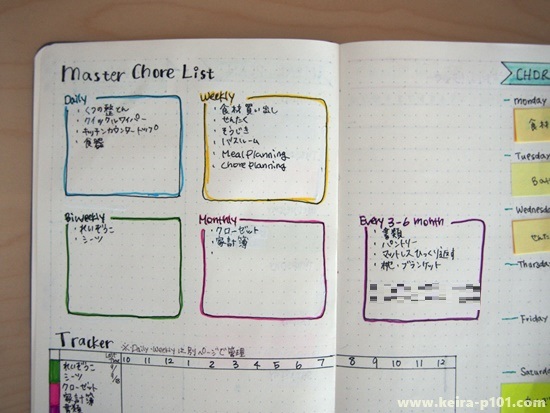 Master Chore List
Daily
・くつの整とん
・クイックルワイパー
・キッチンカウンタートップ
・食器
Weekly
・食材買い出し
・せんたく
・そうじき
・バスルーム
・Meal Planning
・Chore Planning
Biweekly
・れいぞうこ
・シーツ
Monthly
・クローゼット
・家計簿
・
Every 3-6 month
・書類
・パントリー
・マットレスひっくり返す
・枕・ブランケット
CHOR
monday
食材
Tuesday
Bat
Wednesday
せんた
Thursday
Friday
Saturday
Tracker
※Daily・Weeklyは別ページで管理
10 11 12 1 2 3 4 5 6 7 8 9 10 11 12
れいぞうこ
シーツ
クローゼット
家計簿
書類
www.keira-p101.com